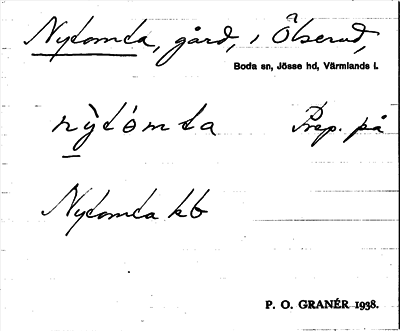 Nytomta, gård, i Ölserud,
Boda sn, Jösse hd, Värmlands l.
nỳtómta Prep. på
Nytomta kb
P. O. GRANÉR 1938.